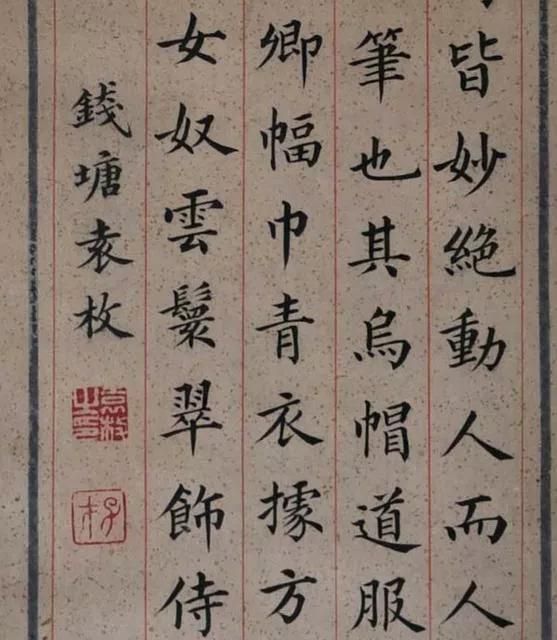 皆妙絶動人而人
筆也其烏帽道服
卿幅巾青衣據方
女奴雲鬟翠飾侍
錢塘袁枚
袁枚之印